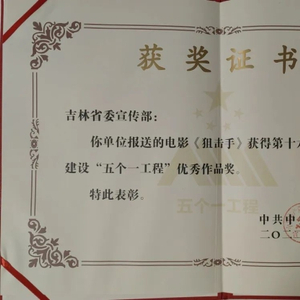 获奖证书
吉林省委宣传部：
你单位报送的电影《狙击手》获得第十
建设“五个一工程”优秀作品奖。
特此表彰。
五个一工程
中共中
二〇二